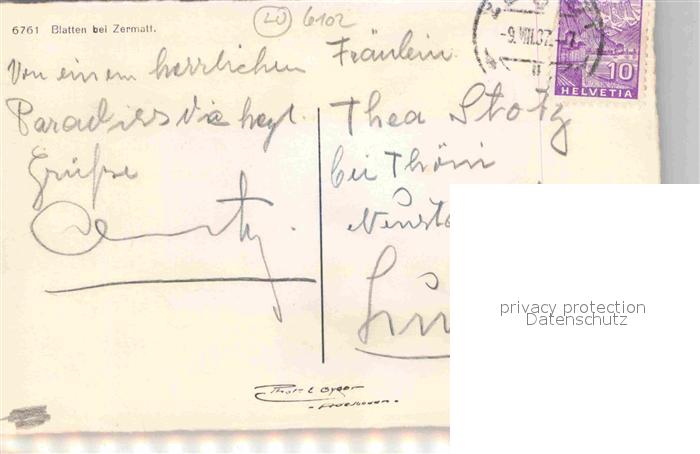 6761 Blatten bei Zermatt.
LU 6102
-9.VIII.37.-7
10
HELVETIA
Von einem herrlichen
Paradies die herzl.
Grüsse
Fräulein
Thea Stotz
bei Thöni
privacy protection
Datenschutz